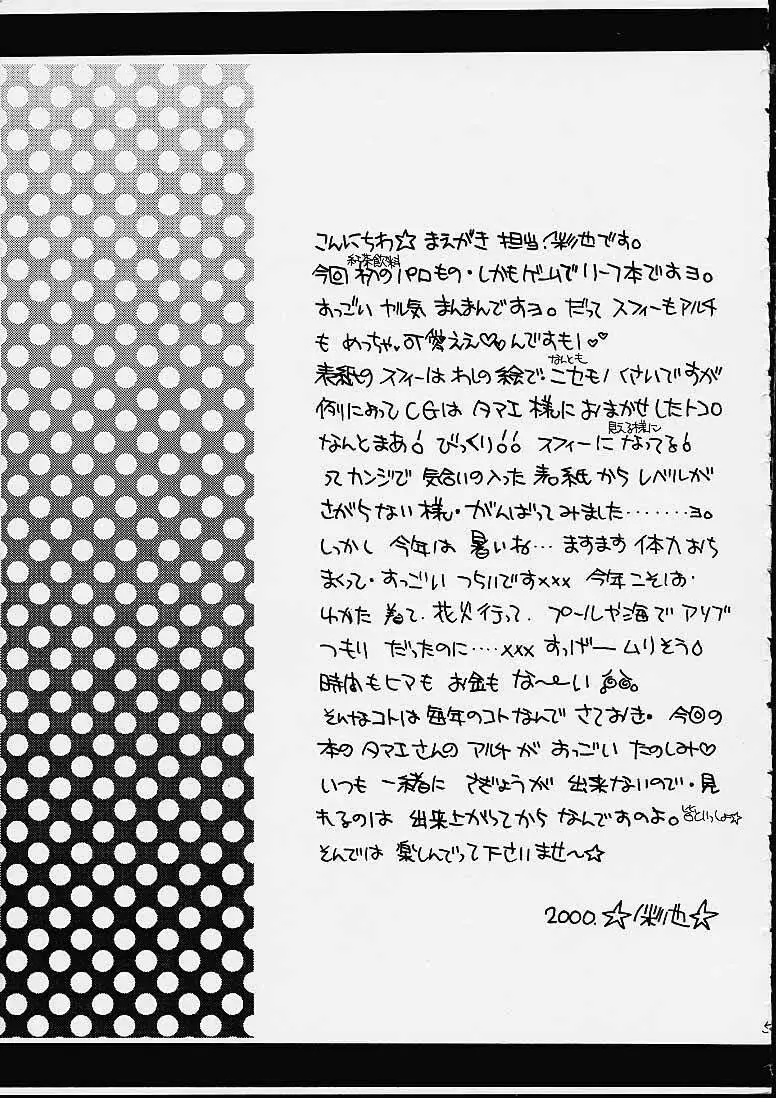 こんにちわ☆ まえがき 担当、彩也です。
紅茶飲料
今回 初のパロもの・しかもゲームでリーフ本ですヨ。
すっごい ヤル気 まんまんですヨ。だって スフィーもアルチ
も めっちゃ、可愛ええ♡♡んですもん♡♡
なんとも
表紙の スフィーは わしの絵で・ニセモノくさいですが
例によって CGは タマエ 様に おまかせしたトコロ
見える様に
なんとまあ! びっくり!! スフィーに なってる!
ってカンジで 気合いの入った 表紙から レベルが
さがらない 様・がんばってみました‥‥‥‥ヨ。
しっかし 今年は 暑いね… ますます 体力 おち
まくって・すっごい つらいですxxx 今年こそは・
ゆかた 着て、花火行って、プールや海で アソブ
つもり だったのに‥‥xxx すっげー ムリそう
時間もヒマも お金も な〜い 。
そんなコトは 毎年のコトなんで さておき・今回の
本の タマエさんの アルチが すっごい たのしみ♡
いつも 一緒に さぎょうが 出来ないので・見
れるのは 出来上がってから なんですのよ。皆といっしょ☆
そんでは 楽しんでって下さいませ〜☆
2000. ☆彩也☆
5